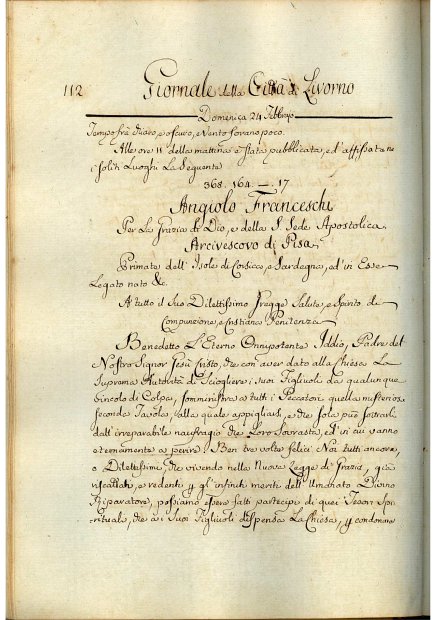 112 Giornale della Città di Livorno
Domenica 24 Febbrajo
Tempo frà chiaro, e oscuro, e Vento Sovrano poco.
Alle ore 11 della mattina è stata pubblicata, ed affissata ne
i soliti Luoghi La Seguente
368. 164. — . 17
Angiolo Franceschi
Per La Grazia di Dio, e della S. Sede Apostolica
Arcivescovo di Pisa,
Primate dell' Isole di Corsica, e Sardegna, ed in Esse
Legato nato &c.
A tutto il Suo Dilettissimo Gregge Salute, e Spirito di
Compunzione, e Cristiana Penitenza
Benedetto L'Eterno Onnipotente Iddio, Padre del
Nostro Signor Gesù Cristo, che con aver dato alla Chiesa La
Suprema Autorità di Sciogliere i suoi Figliuoli da qualunque
vincolo di Colpa, somministra a tutti i Peccatori quella misterios.
seconda Tavola, alla quale appigliarsi, e che sola può sottrarli
dall' irreparabile naufragio che Loro Sovrasta, ed in cui vanno
eternamente a perire. Ben tre volte felici Noi tutti ancora,
o Dilettissimi che vivendo nella Nuova Legge di Grazia, già
riscattati, e redenti p gl' infiniti meriti dell' Umanato Divino
Riparatore, possiamo essere fatti partecipi di quei Tesori Spi-
rituali, che a i Suoi Figliuoli dispensa La Chiesa, p condonare